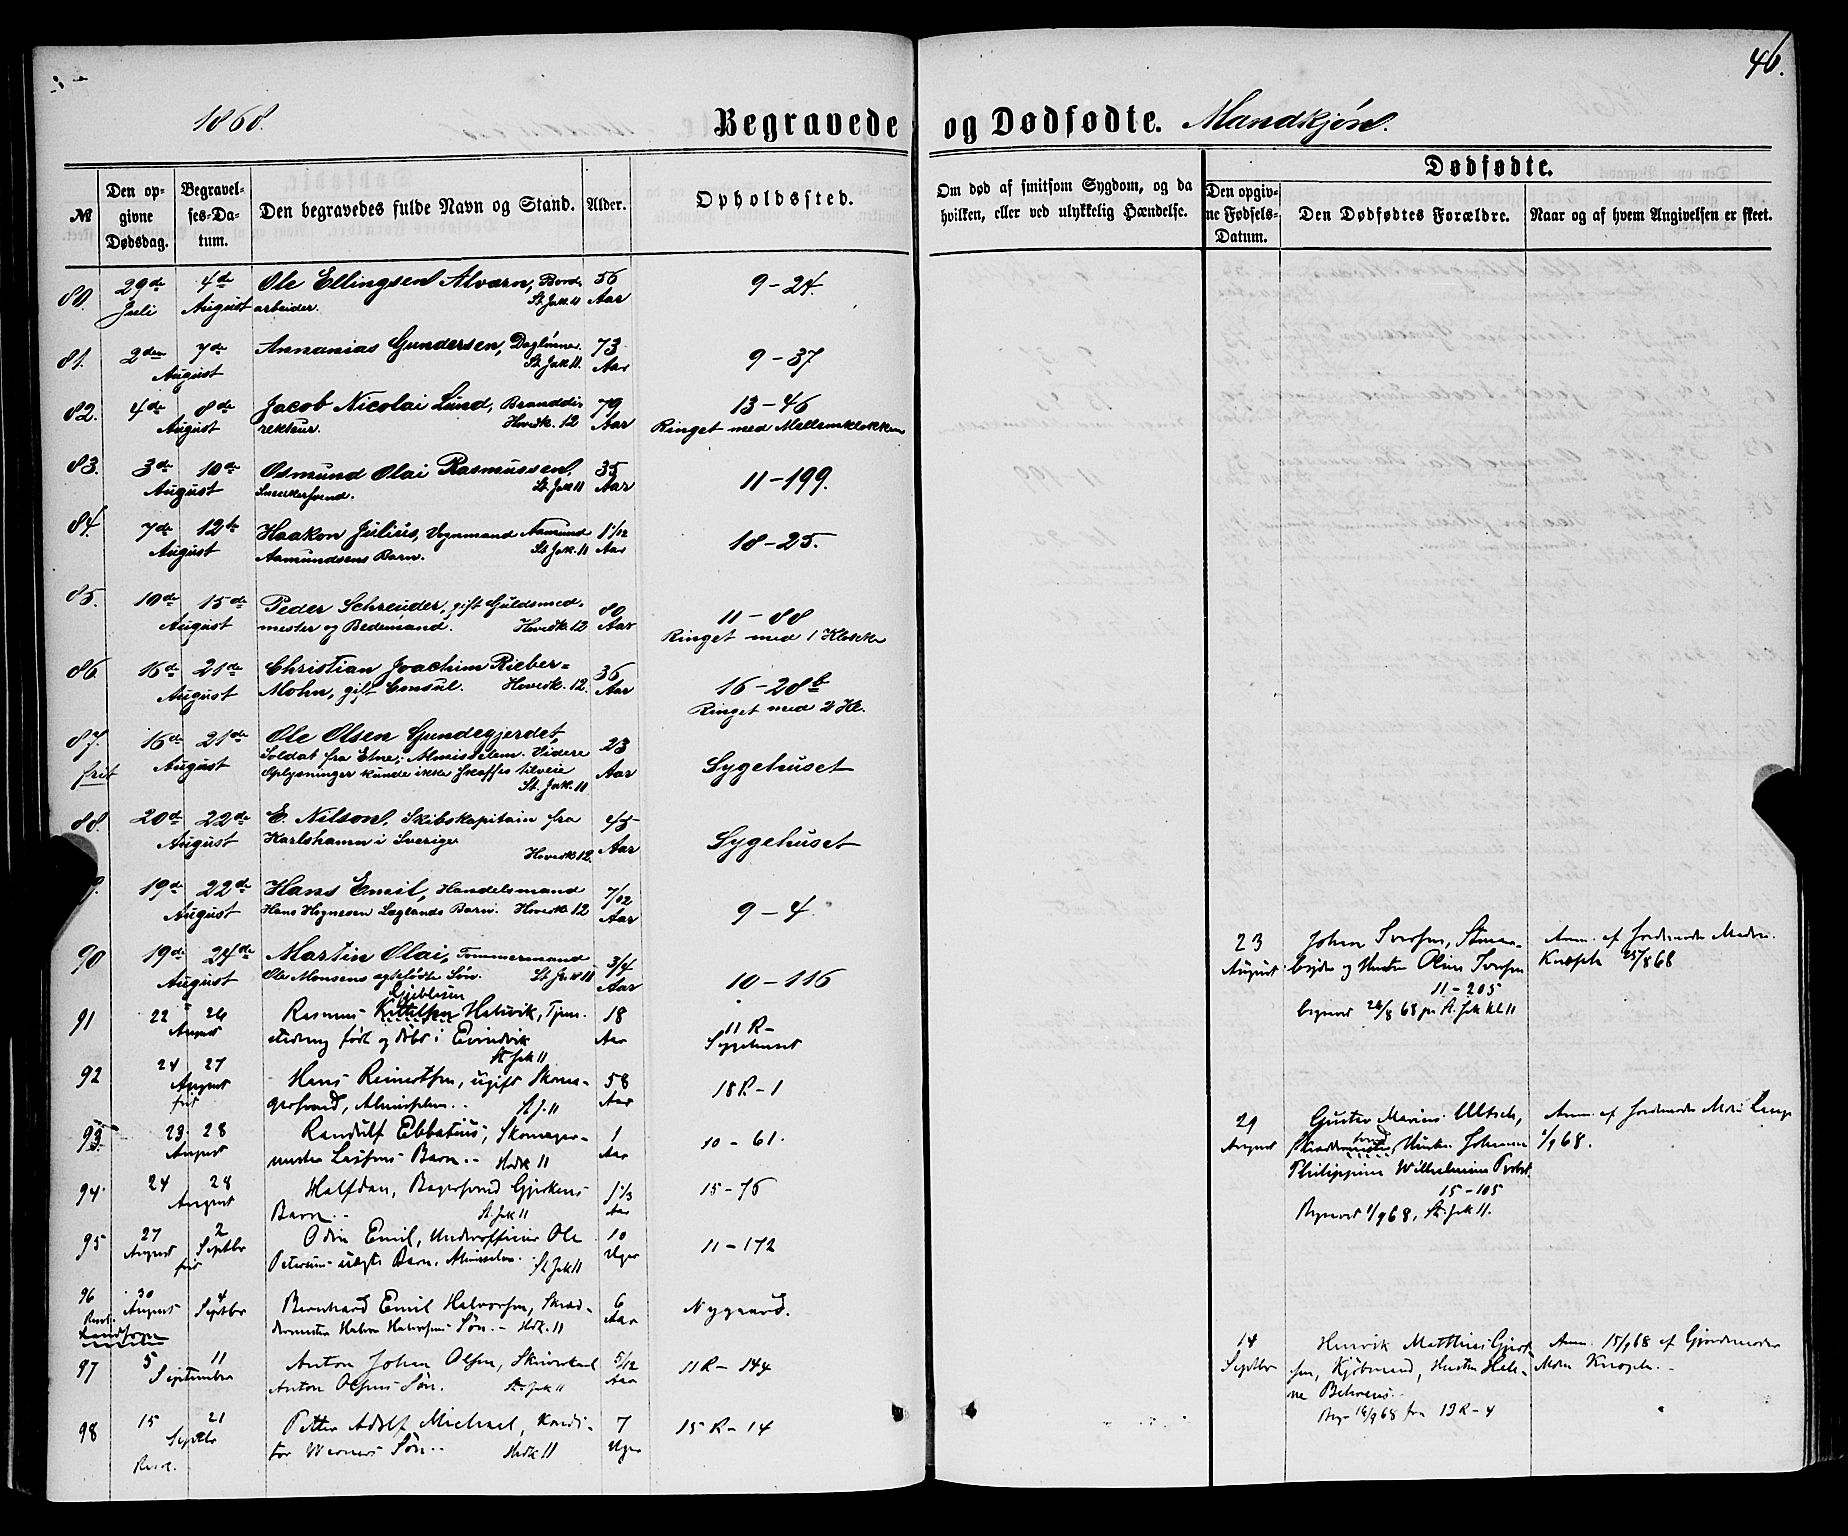 46.
1868.
Begravede og Dødfødte. Mandkjøn.
№
Den opgivne Dødsdag.
Begravelses-Datum.
Den begravedes fulde Navn og Stand.
Alder.
Opholdssted.
Om død af smitsom Sygdom, og da hvilken, eller ved ulykkelig Hændelse.
Dødfødte.
Den opgivne Fødsels-Datum.
Den Dødfødtes Forældre.
Naar og af hvem Angivelsen er skeet.
80. 29de 4de Ole Ellingsen Alværn, Bord- 56 9-24.
Juli August arbeider. St. Jak. 11 Aar
81. 2den 7de Annanias Gundersen, Daglønner. 73 9-37
August St. Jak 11. Aar
82. 4de 8de Jacob Nicolai Lund, Branddi- 79 13-46
August rekteur. Hovedk. 12 Aar Ringet med Mellemklokken
83. 3de 10de Osmund Olai Rasmussen, 35 11-199.
August Snedkersvend. St. Jak 11 Aar
84. 7de 12te Haakon Julius, Vognmand Aamund 1 1/12 18-25.
August Aamundsens Barn. St. Jak. 11 Aar
85. 10de 15de Peder Schreuder, gift Guldsmed- 80 11-88
August mester og Bedemand. Hovedk. 12 Aar Ringet med 1 Klokke
86. 16de 21de Christian Joachim Rieber- 36 16-28b
August Mohn, gift Consul. Hovedk. 12. Aar Ringet med 2 Kl.
87. 16de 21de Ole Olsen Gundegjerdet, 23 Sygehuset
frit August Soldat fra Etne; Almisselem. Videre Aar
Oplysninger kunde ikke skaffes tilveie
St. Jak. 11
88. 20de 22de E. Nilson, Skibskapitain fra 45 Sygehuset
August Karlshamn i Sverige Hovedk. 12. Aar
19de 22de Hans Emil, Handelsmand 7/12 9-4.
August Hans Hognesen Laglands Barn. Hovedk. 12 Aar
90 19de 24de Martin Olai, Tømmermand 3/4 10-116
August Ole Monsens ægtefødte Søn. St. Jak 11 Aar
91 22 26 Rasmus Kittelsen Halsvik, Tjene- 18 11 R-
August født og døbt i Evindvik Aar Sygehuset
St. Jak 11
92 24 27 Hans Reinertsen, ugift Skoma- 58 18 R-1
August gersvend, Almisselem. St. J. 11 Aar
frit
93. 23 28 Randulf Ebbatius, Skomager- 1 10-61.
August mester Barn. Hvdk 11 Aar
94 24 28 Halfdan, Bagersvend Gjerkens 1 1/3 15-76
August Barn. St. Jak 11 Aar
95 27 2 Odin Emil, Underofficier Ole 10 11-172
August Septbr Petersens uægte Barn. Almisselem. St. Jak 11 Uger
frit
96 30 4 Bernhard Emil Halvorsen, Skræd- 6 Nygaard.
August Septbr dermester Halvor Halvorsens Søn. Hdk. 11 Aar
97 5 11 Anton Johan Olsen, 5/12 11 R-144
September Anton Olsens Søn. St. Jak 11 Aar
98 15 21 Petter Adolf Michael, Kondi- 7 15 R-14
Septbr tor Werners Søn. Hvdk 11 Uger
23 Johan Iversen, Stuer-
August Hustru Oline Iversen
11-205
begravet 26/8 68 St. Jak kl 11
Anm. af Jordemoder Madm.
25/8 68
29 Gustav Marius Ultsch,
August Hustru Johanne
Philippine Wilhelmine
15-105
Begravet 1/9 68, St. Jak 11.
Anm. af Jordemoder Mdm. Lange
1/9 68.
14 Henrik Matthias Gjert-
Septbr sen, Kjøbmand, Hustru Hele-
ne Behrens.
Begr. 16/9 68 fra 13 R-4
Anm. 15/9 68 af Gjordemoder